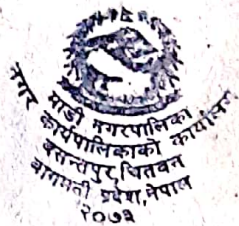 माडी नगरपालिका
नगर कार्यपालिकाको कार्यालय
वसन्तपुर, चितवन
बागमती प्रदेश, नेपाल
२०७३